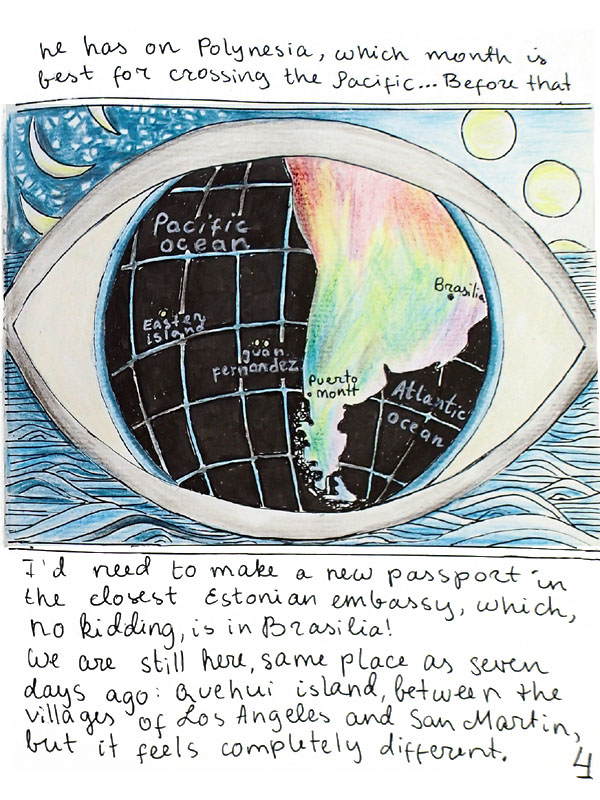 he has on Polynesia, which month is
best for crossing the Pacific... Before that
Pacific
ocean
Brasilia
Easter
island
Juan
fernandez
Puerto
montt
Atlantic
ocean
I'd need to make a new passport in
the closest Estonian embassy, which,
no kidding, is in Brasilia!
We are still here, same place as seven
days ago: Quehui island, between the
villages of Los Angeles and San Martin,
but it feels completely different.
4